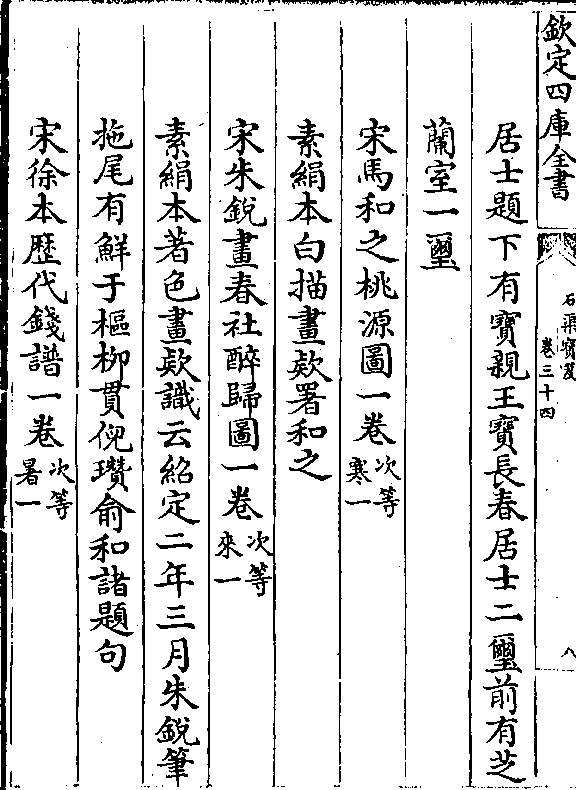 欽定四庫全書
石渠寶笈
卷三十四
八
居士題下有寶親王寶長春居士二璽前有芝
蘭室一璽
宋馬和之桃源圖一卷次等寒一
素絹本白描畫欵署和之
宋朱銳畫春社醉歸圖一卷次等來一
素絹本著色畫欵識云紹定二年三月朱銳筆
拖尾有鮮于樞柳貫倪瓚俞和諸題句
宋徐本歷代錢譜一卷次等暑一